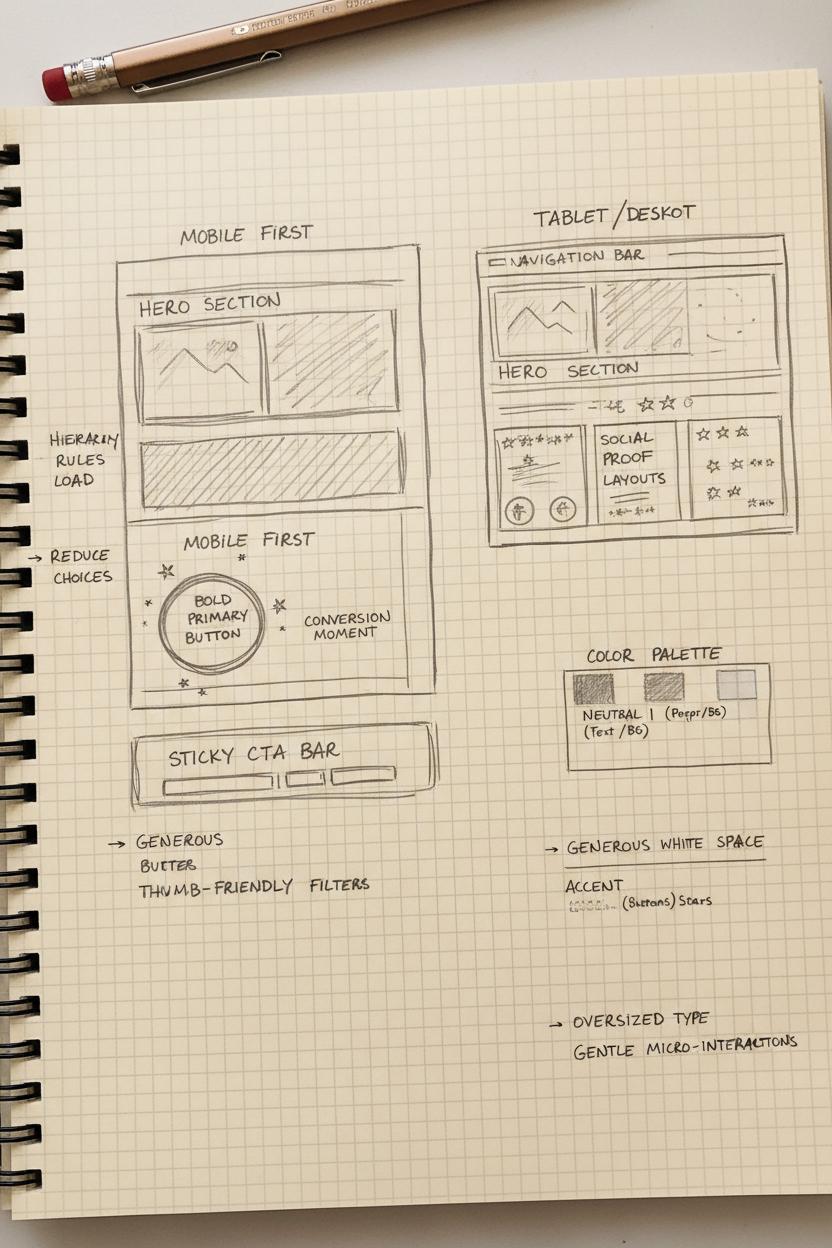 MOBILE FIRST
HERO SECTION
HIERARLY
RULES
LOAD
→ REDUCE
CHOICES
MOBILE FIRST
BOLD
PRIMARY
BUTTON
CONVERSION
MOMENT
STICKY CTA BAR
→ GENEROUS
THUMB-FRIENDLY FILTERS
TABLET/DESKOT
NAVIGATION BAR
HERO SECTION
SOCIAL
PROOF
LAYOUTS
COLOR PALETTE
NEUTRAL
(Text /BG)
→ GENEROUS WHITE SPACE
ACCENT
Stars
→ OVERSIZED TYPE
GENTLE MICRO-INTERACTIONS